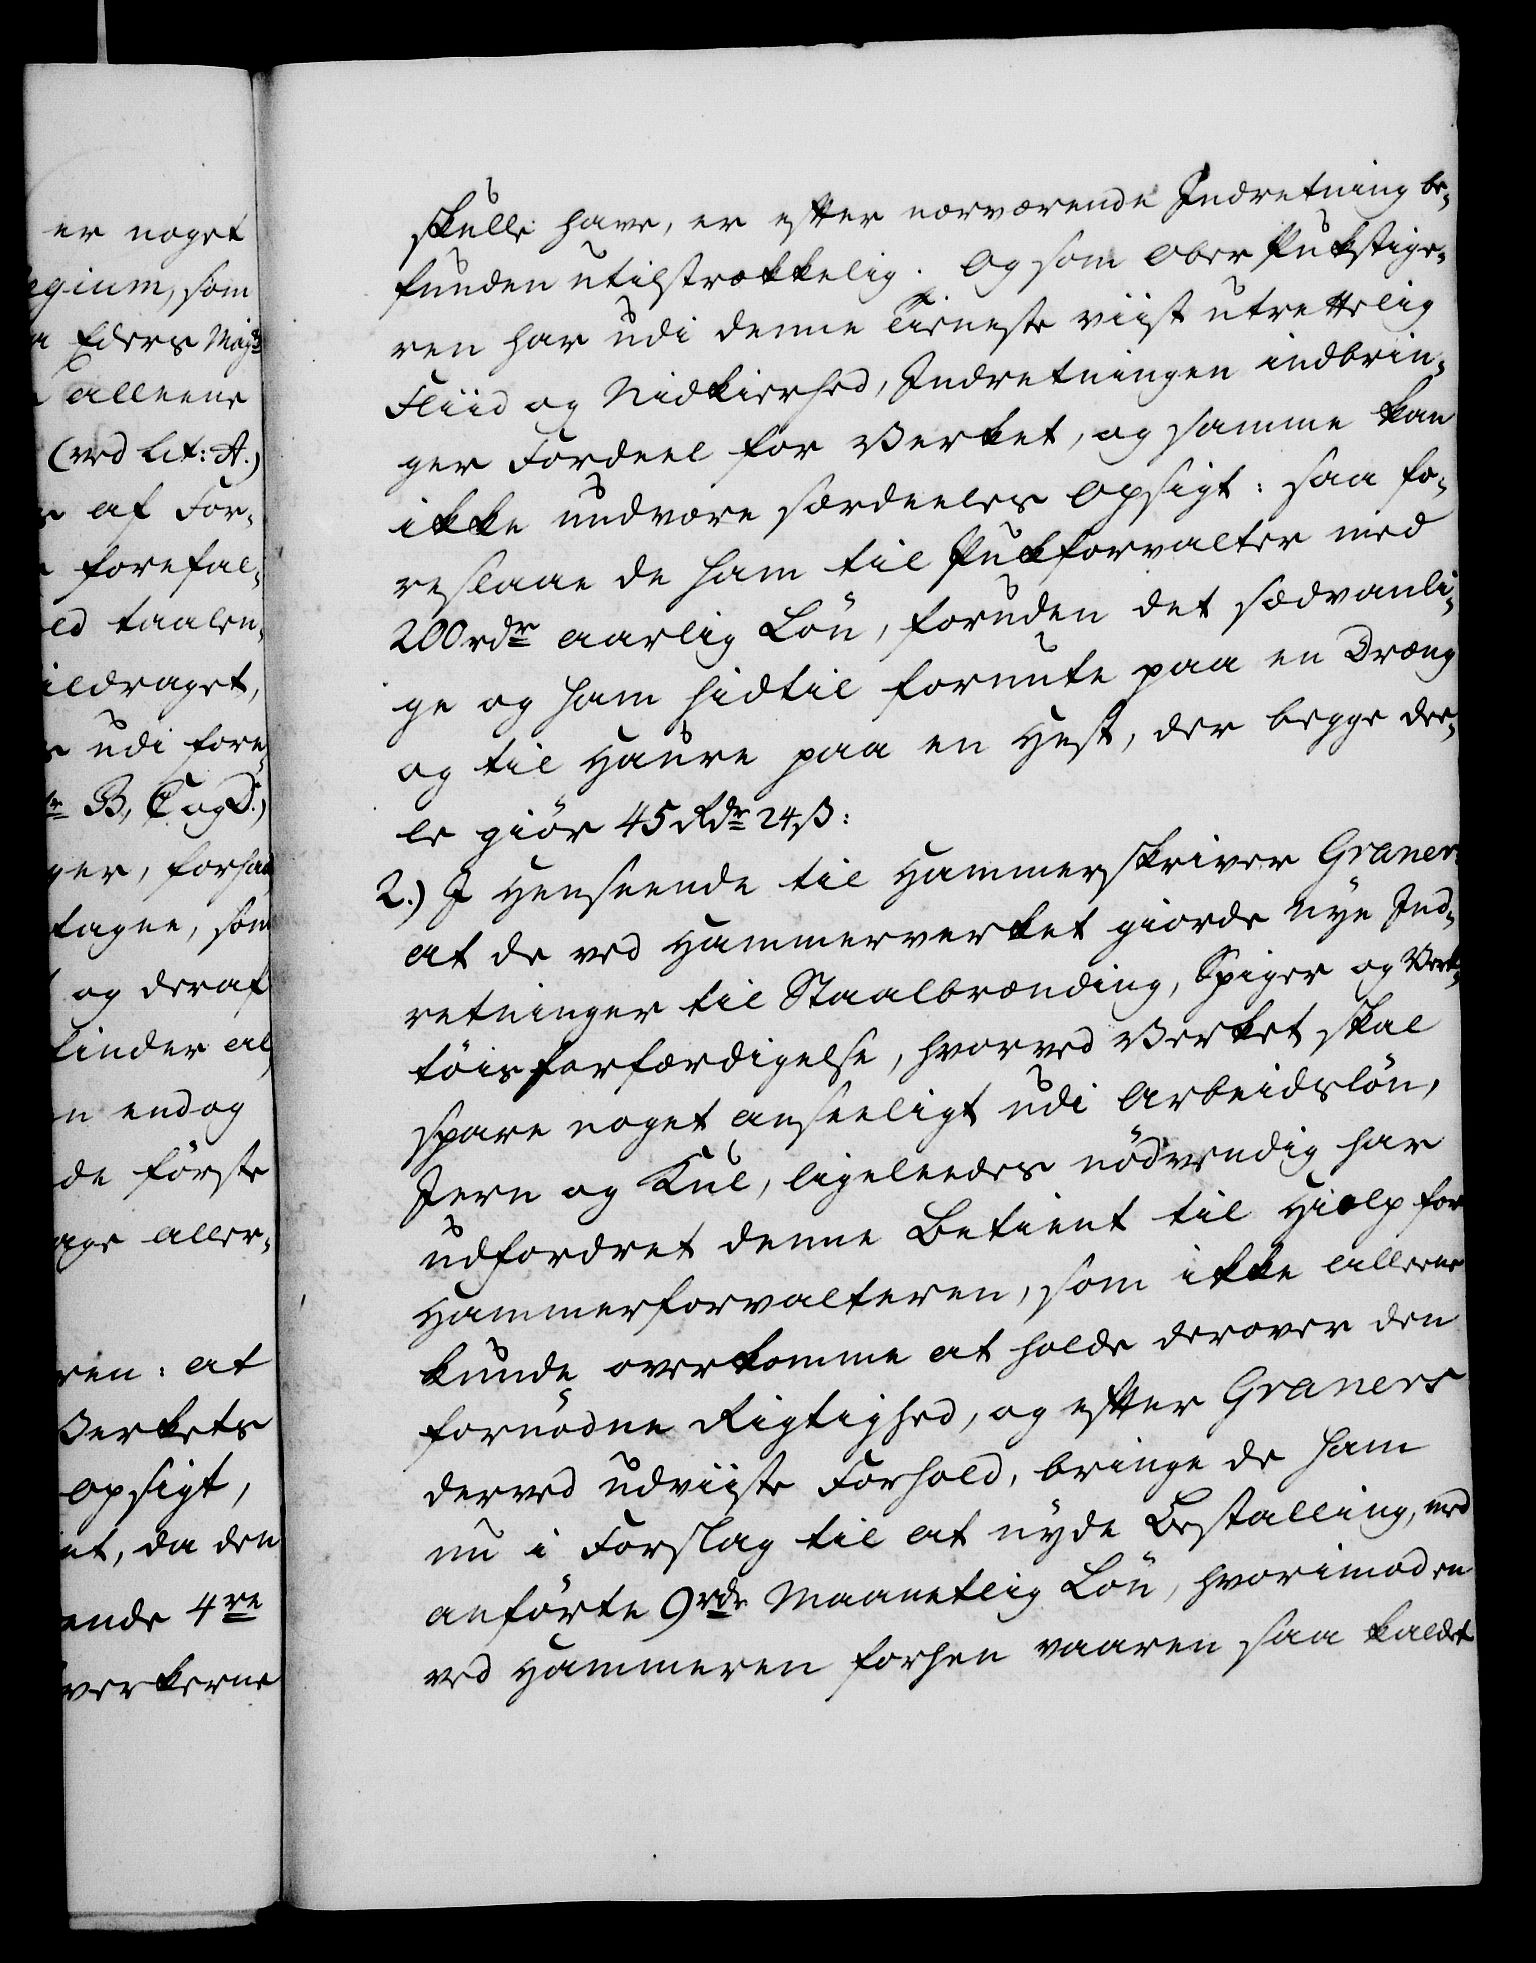 er noget
egium, som
Eders Maj:ts
alleene
(ved Lit: A.)
af For-
forefal-
ed taalen-
ildraget,
udi fore-
B, C og D.)
ger, forhaa
tagne, som
og deraf
finder al
n endog
de første
age aller-
ren: at
Verkets
Opsigt,
nt, da den
ende 4re
verkerne
skulle have, er efter nærværende Indretning be-
funden utilstrækkelig. Og som Ober Pukstige-
ren har udi denne Tieneste viist utrættelig
Fliid og Nidkierhed, Indretningen indbrin-
ger Fordeel for Verket, og samme kan
ikke undvære særdeeles Opsigt: saa fo-
reslaae de ham til Pukforvalter med
200 rdr aarlig Løn, foruden det sædvanli-
ge og ham hidtil forundte paa en Dræng
og til Haure paa en Hest, der begge dee-
le giør 45 Rdr 24 ß:
2.) I Henseende til Hammerskriver Graners
at de ved Hammerverket giorde nye Ind-
retninger til Staalbrænding, Spiger og Verk-
tøis forfærdigelse, hvorved Verket skal
spare noget anseeligt udi Arbeidsløn,
Jern og Kul, ligeleedes nødvendig har
udfordret denne Betient til Hielp for
Hammerforvalteren, som ikke alleene
kunde overkomme at holde derover den
fornødne Rigtighed, og efter Graners
derved udviiste Forhold, bringe de ham
nu i Forslag til at nyde Bestalling, med
anførte 9 rdr Maanetlig Løn, hvorimod en
ved Hammeren forhen vaaren saa kaldet